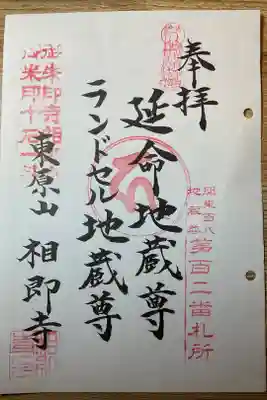 奉拝
関東百八
地蔵尊
第百二番札所
延命地蔵尊
ランドセル地蔵尊
東原山 相即寺